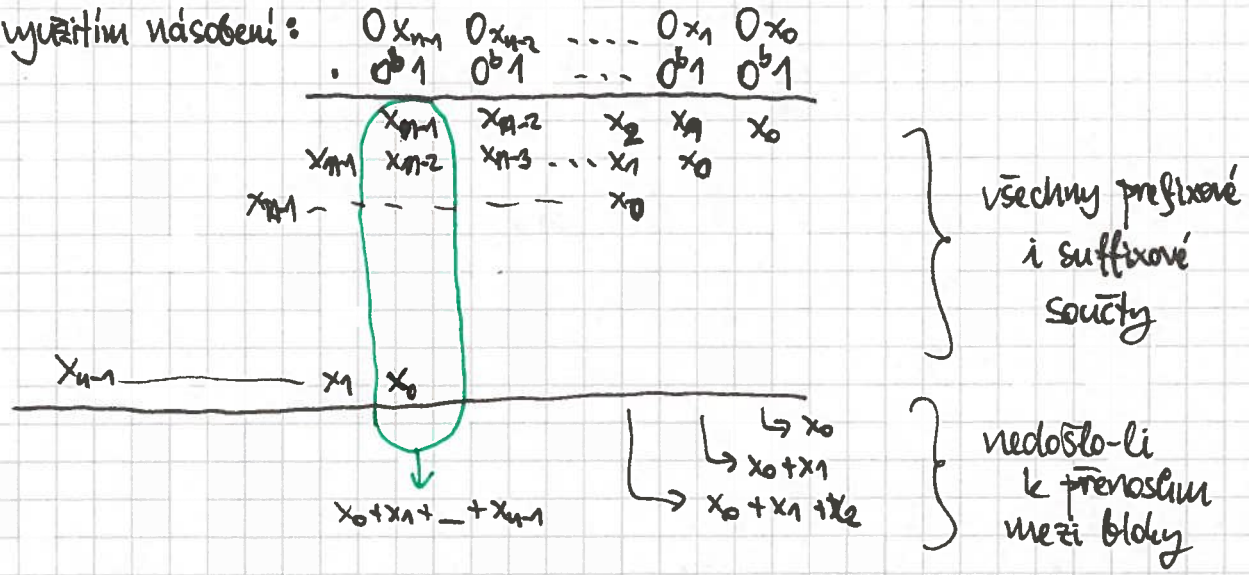 využitím násobení: 0x_{n-1} 0x_{n-2} .... 0x_1 0x_0
. 0^b1 0^b1 ... 0^b1 0^b1
x_{n-1} x_{n-2} x_2 x_1 x_0
x_{n-1} x_{n-2} x_{n-3} ... x_1 x_0
x_{n-1} - - - - - - x_0
všechny prefixové
i suffixové
součty
x_{n-1} ——— x_1 x_0
↳ x_0
↳ x_0+x_1
↳ x_0+x_1+x_2
x_0+x_1+_+x_{n-1}
nedošlo-li
k přenosům
mezi bloky